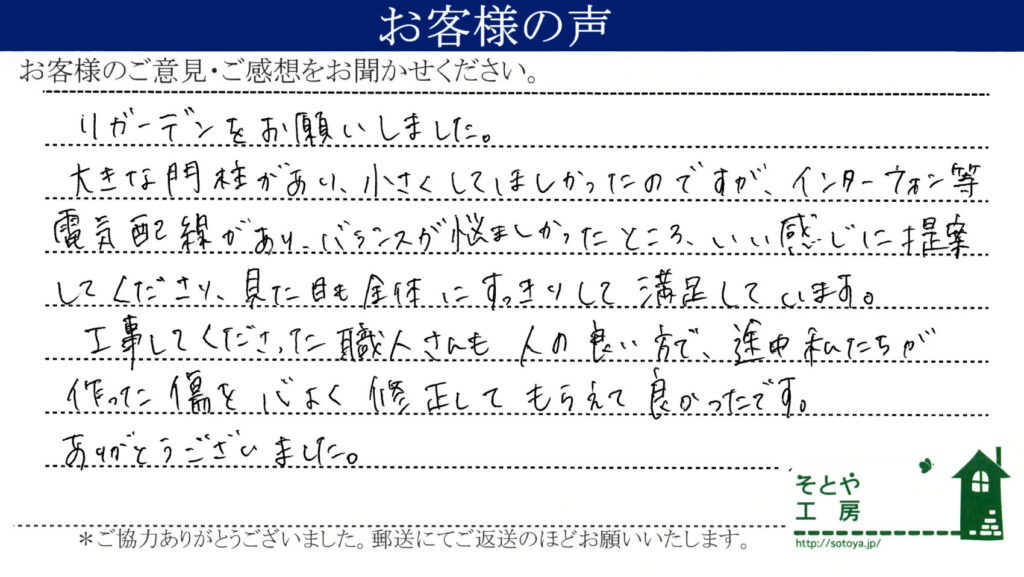 お客様の声
お客様のご意見・ご感想をお聞かせください。
リガーデンをお願いしました。
大きな門柱があり、小さくしてほしかったのですが、インターフォン等
電気配線があり、バランスが悩ましかったところ、いい感じに提案
してくださり、見た目も全体にすっきりして満足しています。
工事してくださった職人さんも人の良い方で、途中私たちが
作った傷を心よく修正してもらえて良かったです。
ありがとうございました。
そとや
工房
http://sotoya.jp/
＊ご協力ありがとうございました。郵送にてご返送のほどお願いいたします。